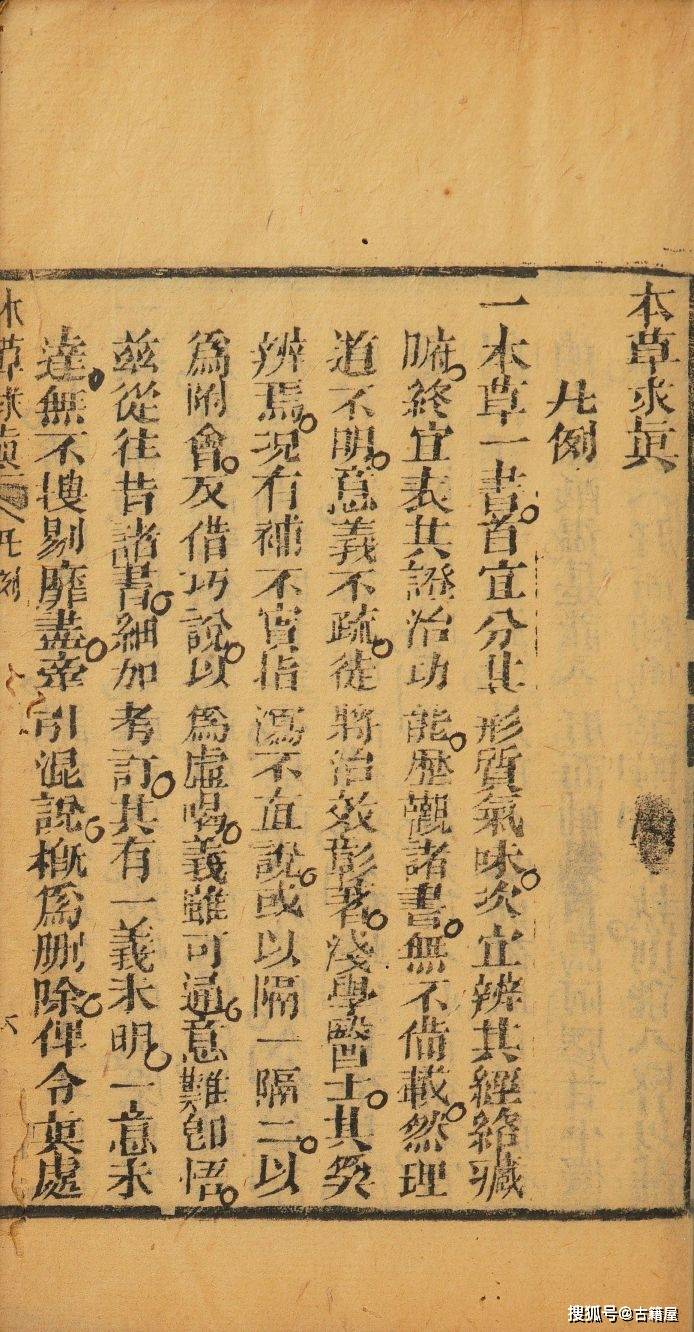 本草求眞
凡例
一本草一書首宜分其形質氣味次宜辨其經絡臟
腑終宜表其證治功能歷觀諸書無不備載然理
道不明意義不疏徒將治效彰著淺學醫士其奚
辨焉現有補不實指瀉不直說或以隔一隔二以
爲附會反借巧說以爲虛喝義雖可通意難卽悟
茲從往昔諸書細加考訂其有一義未明一意未
達無不搜剔靡盡牽引混說槪爲刪除俾令眞處
本草求眞
凡例
搜狐号@古籍屋